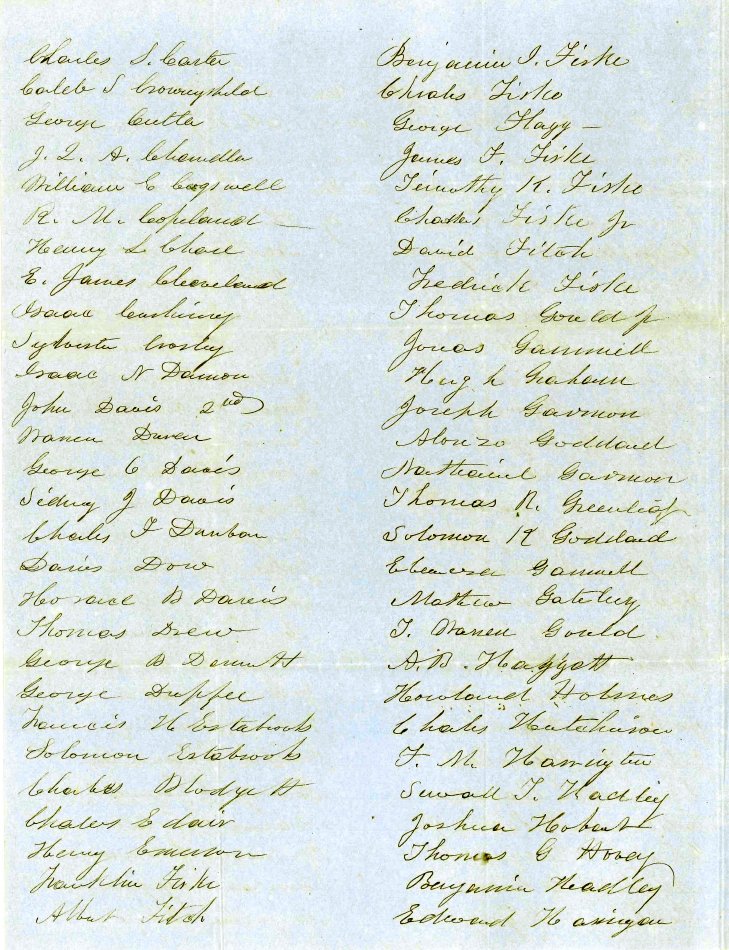 Charles S. Carter
Caleb S Crowninshield
George Cutler
J. Q. A. Chandler
William E Cogswell
R. M. Copeland —
Henry L Chase
E. James Cleaveland
Isaac Cushing
Sylvester Crosby
Isaac N Damon
John Davis 2nd
Warren Duren
George C Davis
Sidney J Davis
Charles F Dunbar
Darius Dow
Horace B Davis
Thomas Drew
George B Dennett
George Duppee
Francis H Estabrook
Solomon Estabrook
Charles Blodgett
Charles Edair
Henry Emerson
Franklin Fiske
Albert Fitch
Benjamin I. Fiske
Charles Fiske
George Flagg —
James F. Fiske
Timothy K. Fiske
Charles Fiske Jr
David Fitch
Fredrick Fiske
Thomas Gould Jr
Jonas Gammell
Hugh Graham
Joseph Garmon
Alonzo Goddard
Nathaniel Garmon
Thomas R. Greenleaf
Solomon K Goddard
Ebenezer Gammell
Mathew Gateley
T. Warren Gould
A. B. Haggott
Howland Holmes
Charles Hutchinson
F. M. Harrington
Sewall T. Hadley
Joshua Hobart
Thomas G Hovey
Benjamin Headley
Edward Harrigan